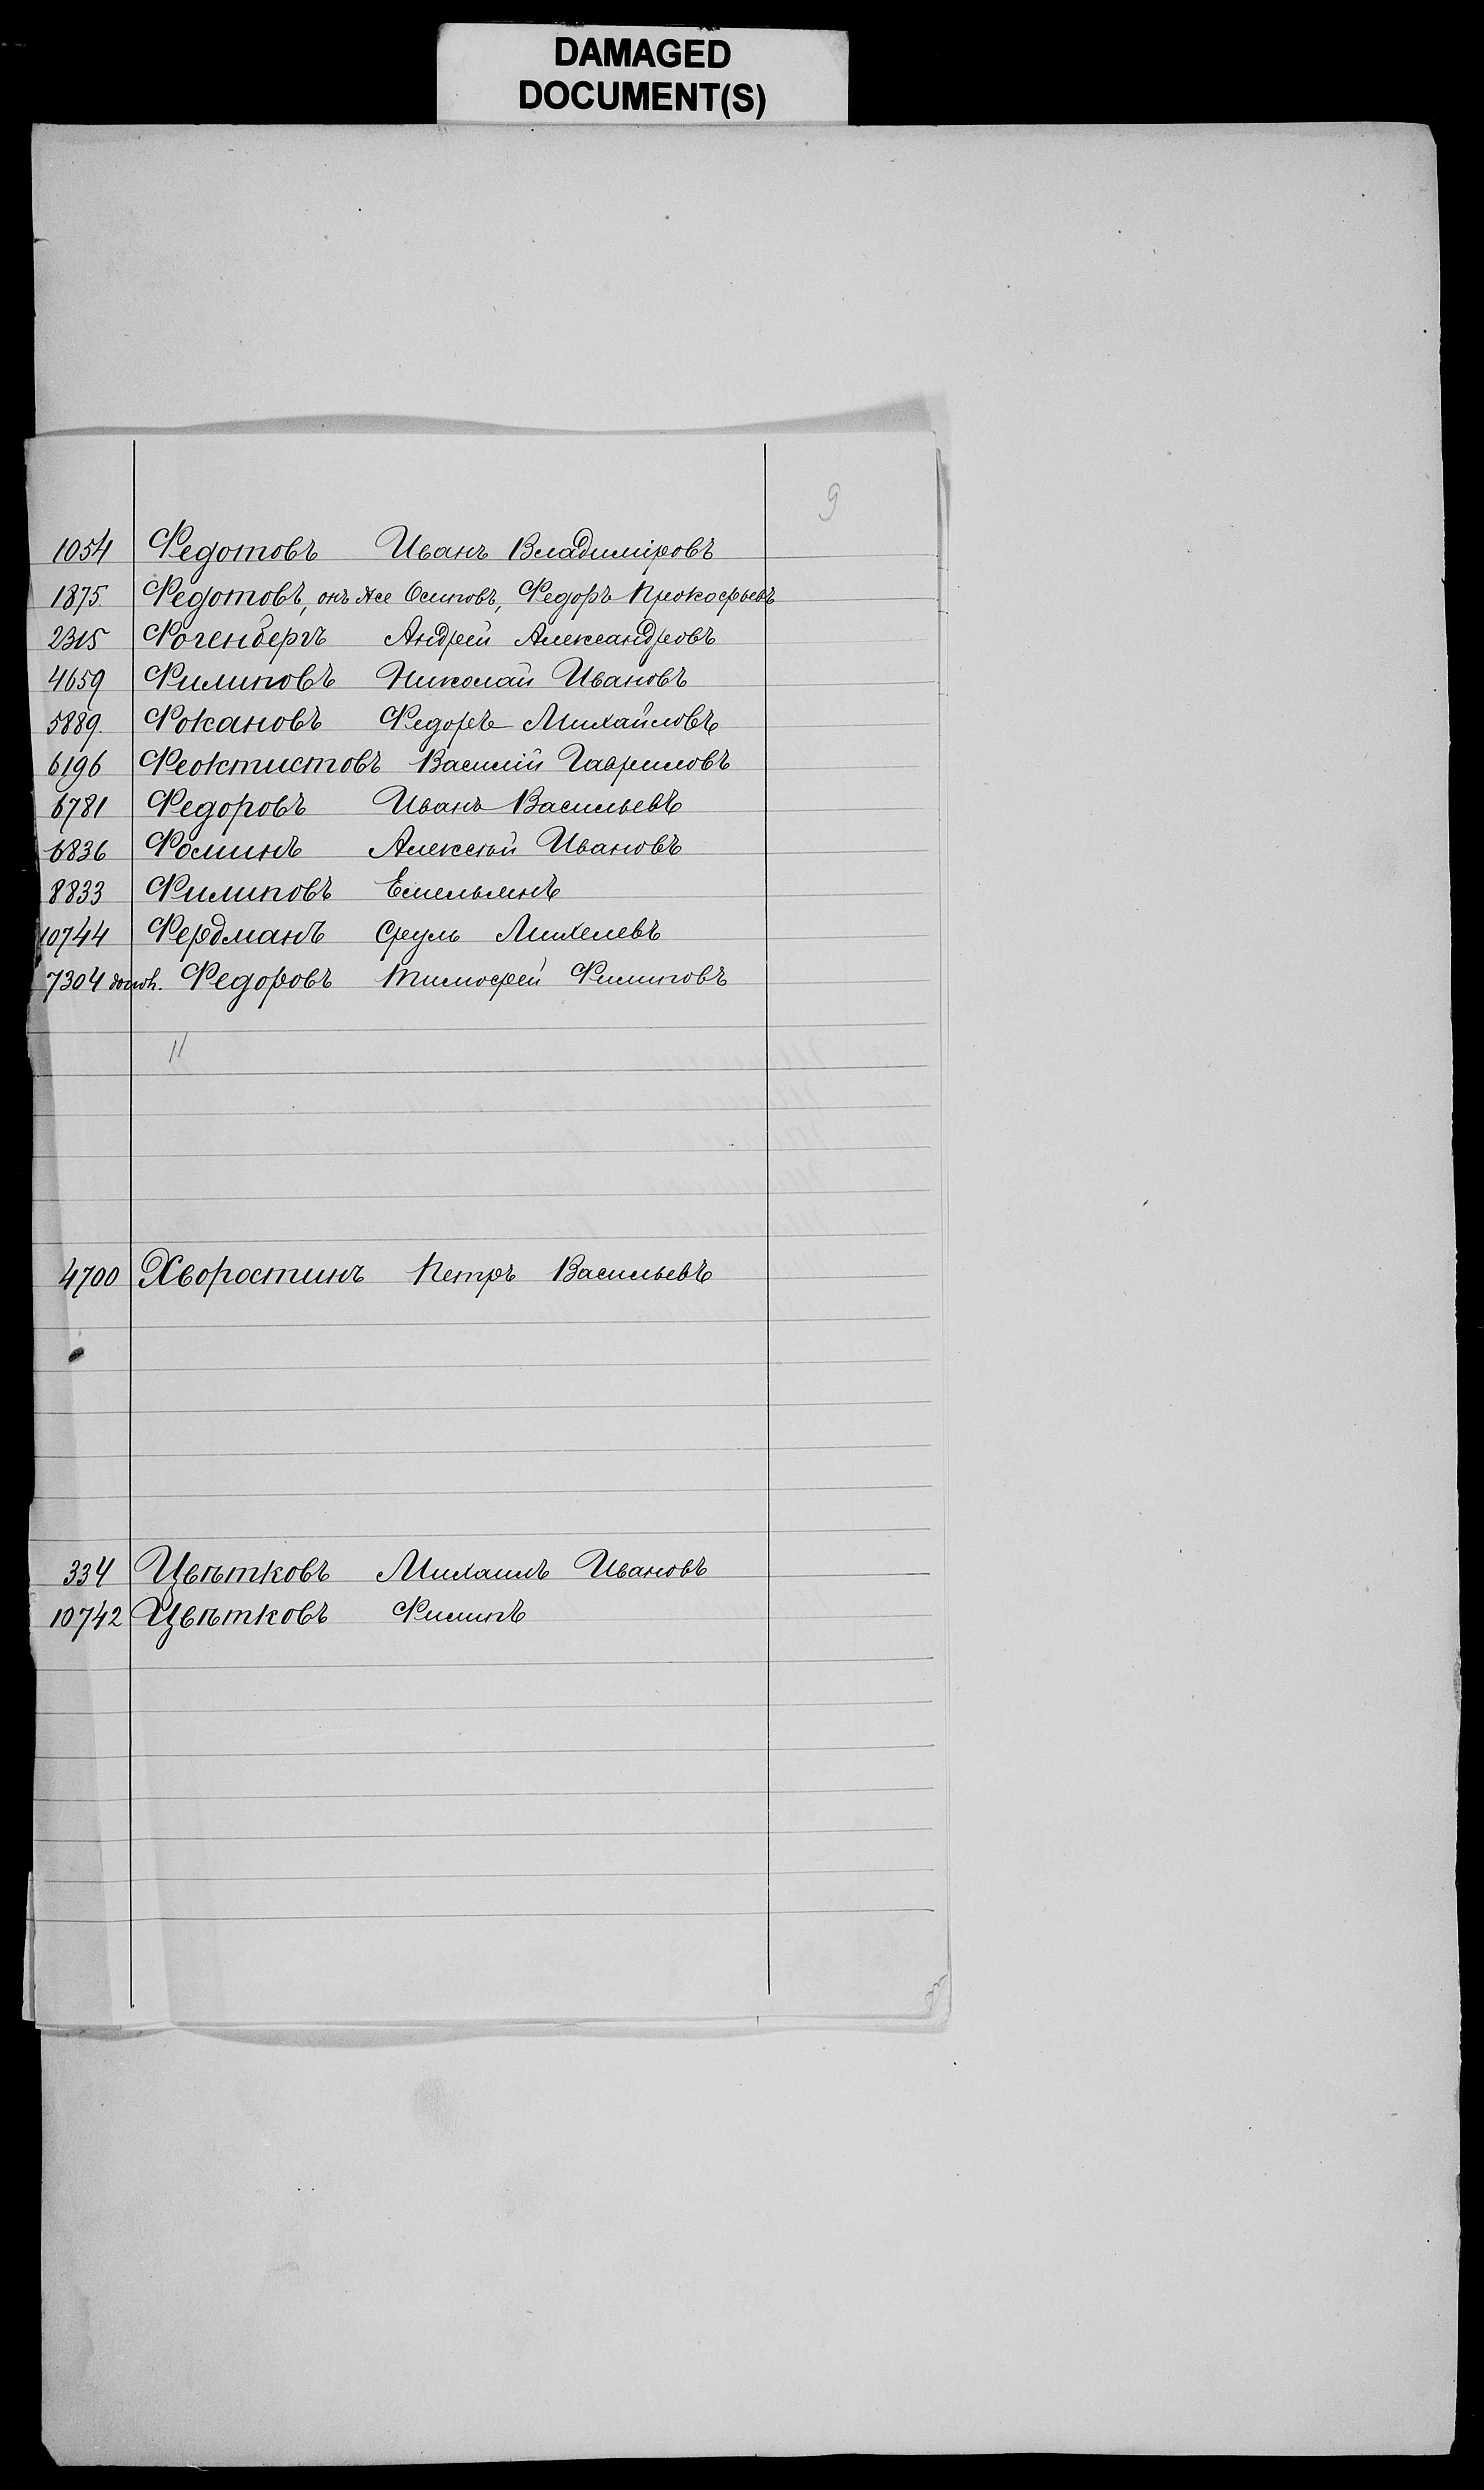 DAMAGED
DOCUMENT(S)
9
1054 Федотовъ Иванъ Владиміровъ
1875. Федотовъ, онъ же Осиповъ, Федоръ Прокофьевъ
2315 Фогенбергъ Андрей Александровъ
4659 Филиповъ Николай Ивановъ
5889. Фокановъ Федоръ Михайловъ
6196 Феоктистовъ Василій Гавриловъ
6781 Федоровъ Иванъ Васильевъ
6836 Фоминъ Алексѣй Ивановъ
8833 Филиповъ Емельянъ
10744 Фердманъ Сруль Михелевъ
7304 Федоровъ Тимофей Филиповъ
11
4700 Хворостинъ Петръ Васильевъ
334 Цвѣтковъ Михаилъ Ивановъ
10742 Цвѣтковъ Филипъ